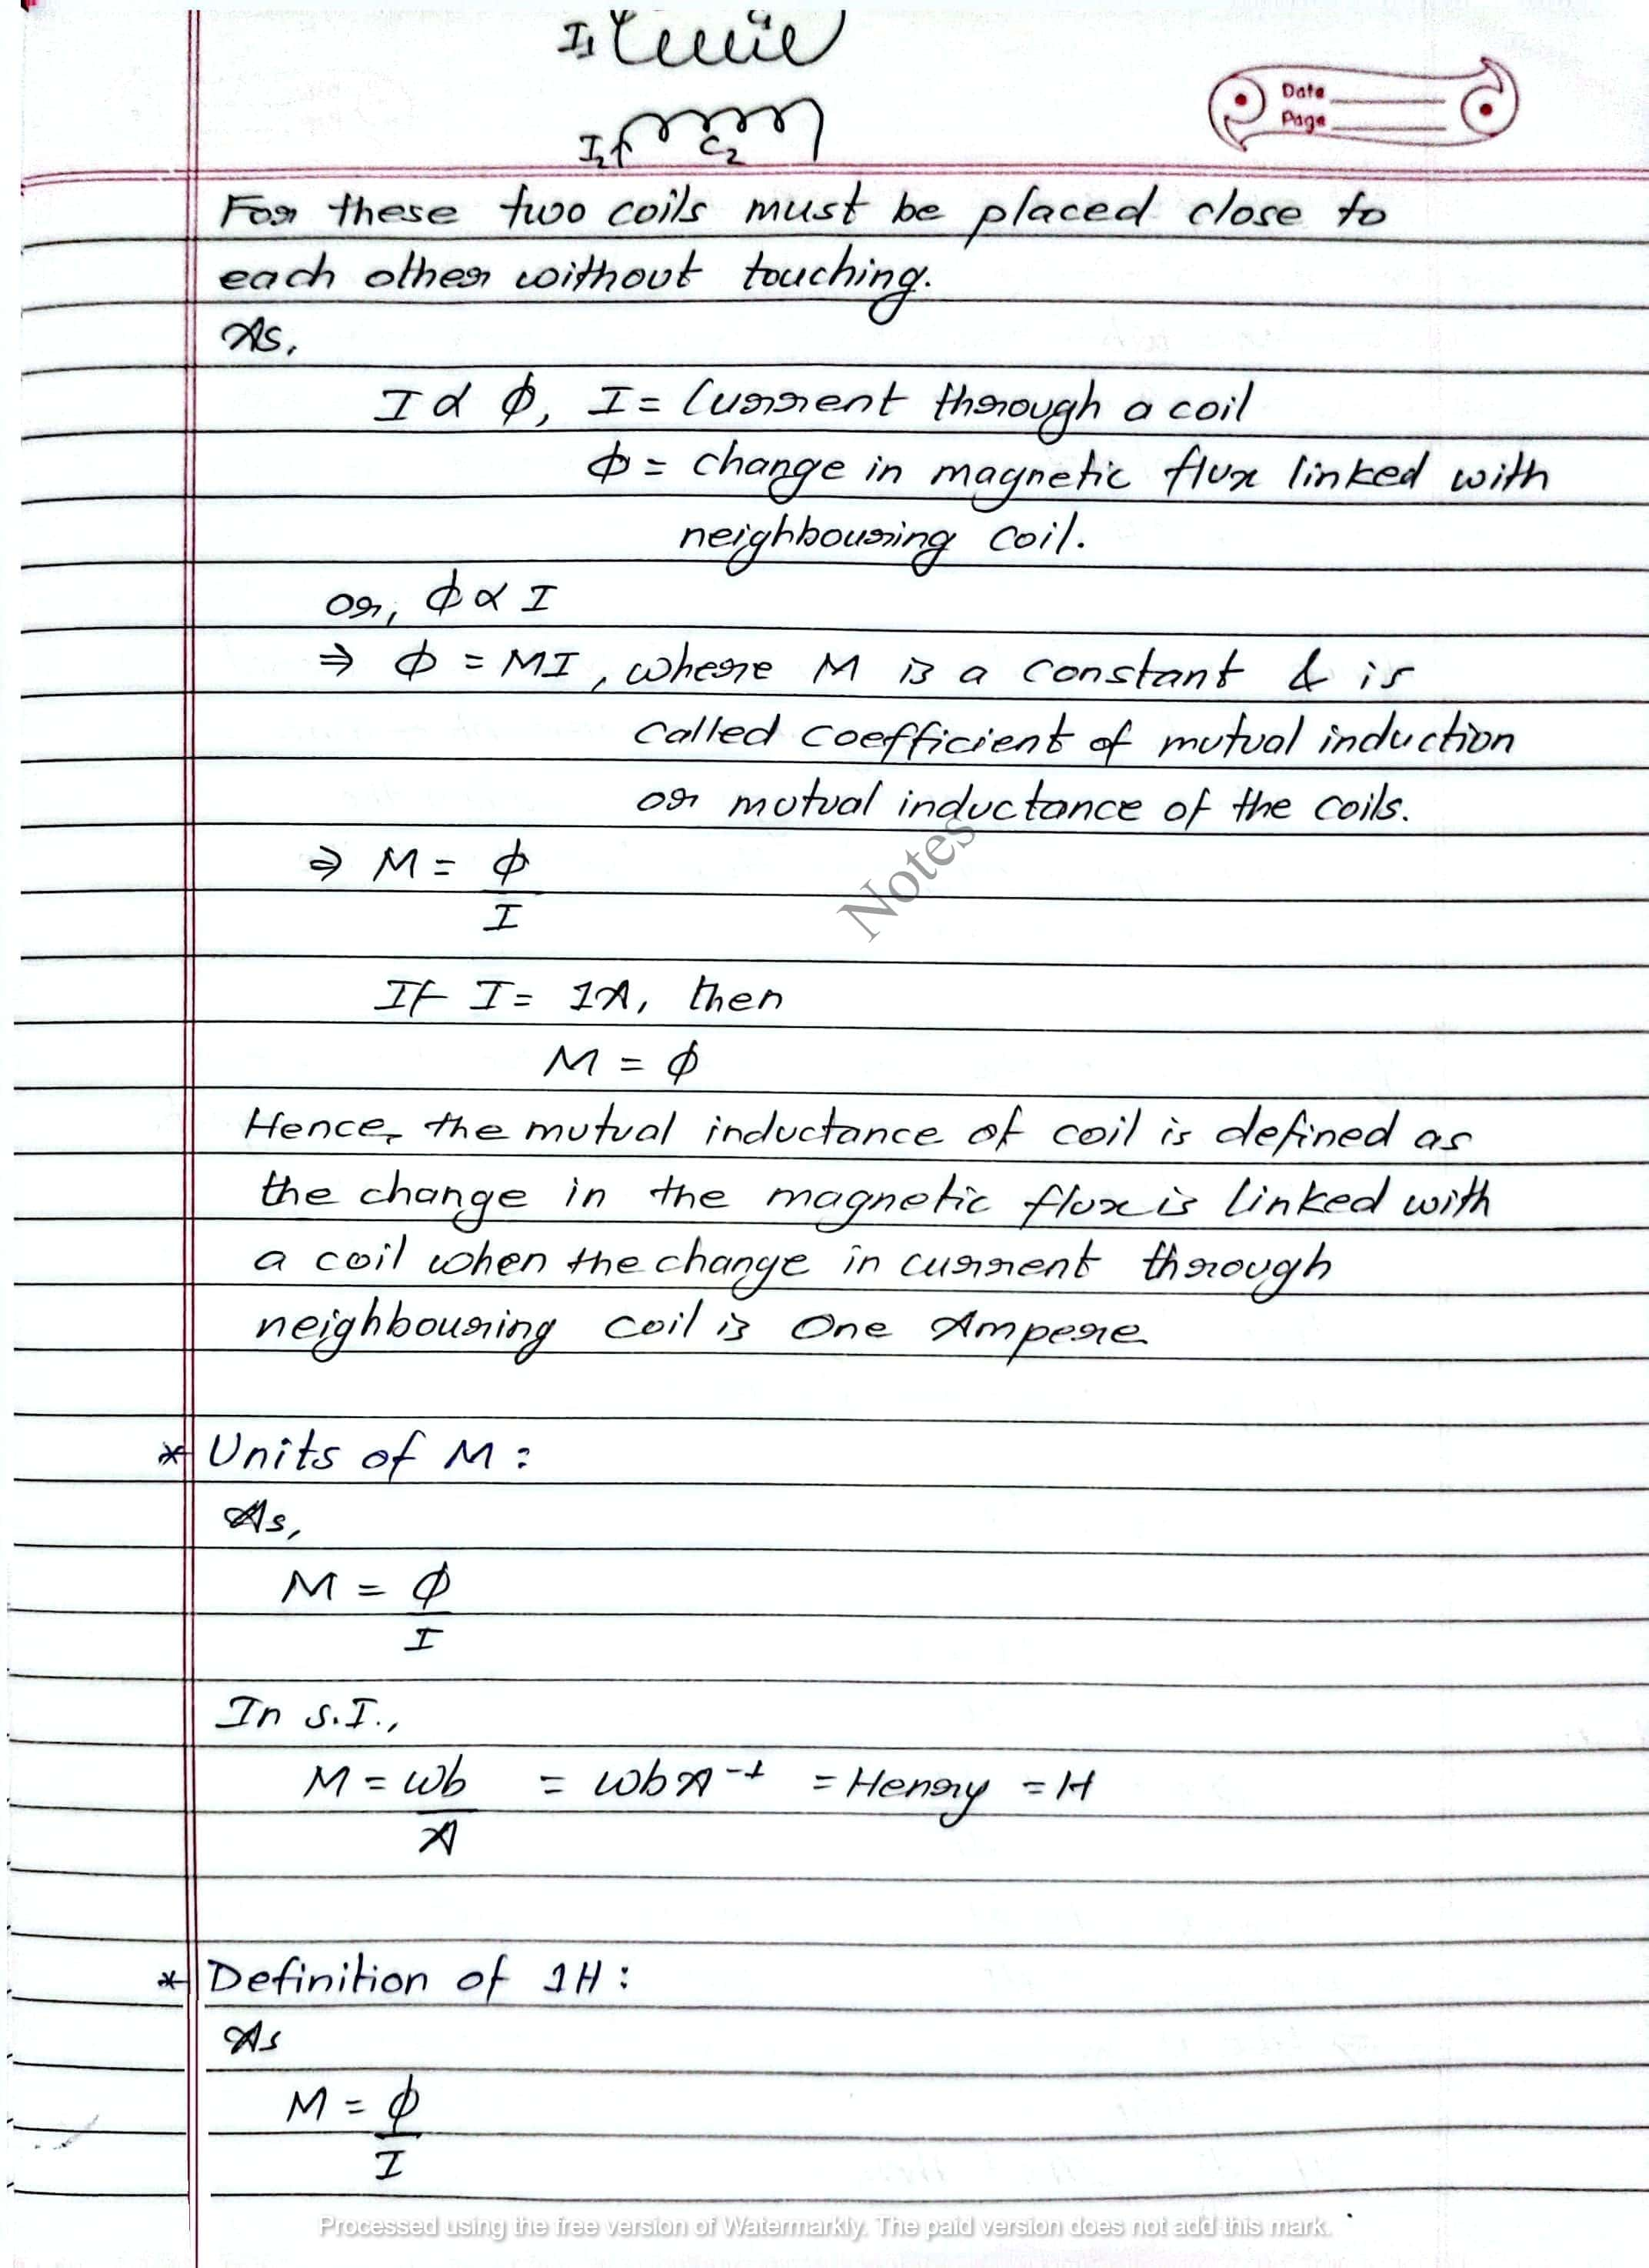 I₁ C₁
I₂ C₂
Date
Page
For these two coils must be placed close to
each other without touching.
As,
I ∝ ϕ, I = Current through a coil
ϕ = change in magnetic flux linked with
neighbouring coil.
or, ϕ ∝ I
⇒ ϕ = MI, where M is a constant & is
called coefficient of mutual induction
or mutual inductance of the coils.
⇒ M = ϕ
I
Notes
If I = 1A, then
M = ϕ
Hence, the mutual inductance of coil is defined as
the change in the magnetic flux is linked with
a coil when the change in current through
neighbouring coil is One Ampere
* Units of M :
As,
M = ϕ
I
In S.I.,
M = wb = wbA⁻¹ = Henry = H
A
* Definition of 1H :
As
M = ϕ
I
Processed using the free version of Watermarkly. The paid version does not add this mark.